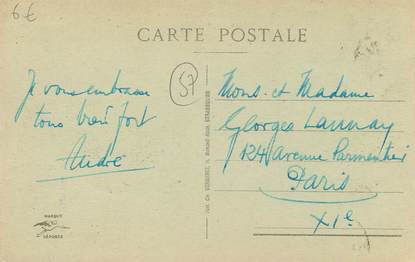 6€
CARTE POSTALE
57
Je vous embrasse
tous bien fort
André
Mons. et Madame
Georges Launay
124 avenue Parmentier
Paris
XIe
MARQUE
DÉPOSÉE